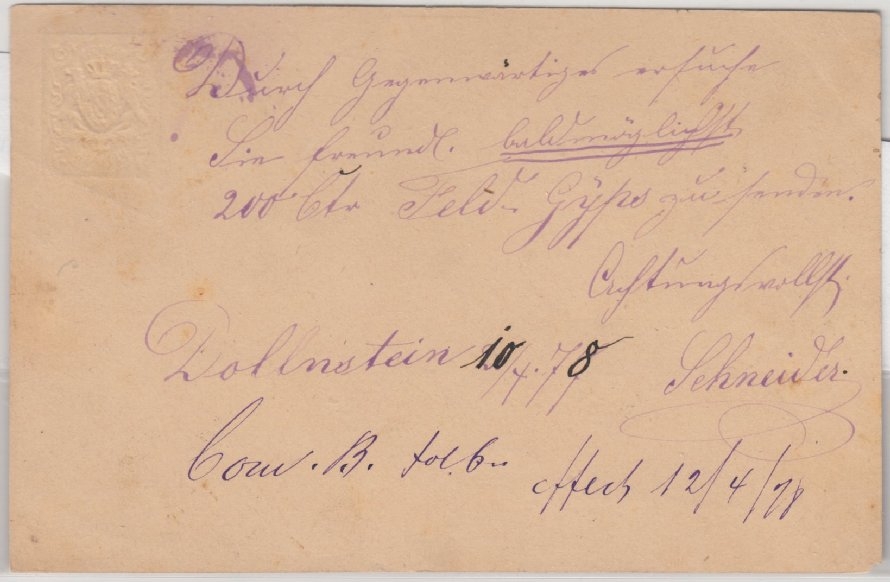 Durch Gegenwärtiges ersuche
Sie freundl. baldmöglichst
200 Ctr Feld-Gÿps zu senden.
Achtungsvollst
Dollnstein 10/4.78 Schneider.
Com. B. fol. 12/4/78